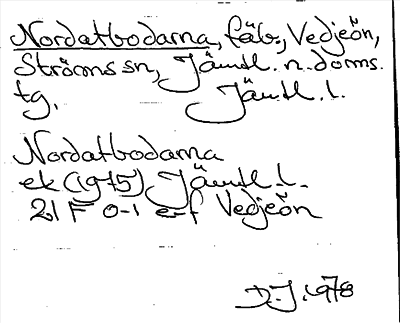 Nordatbodarna, fäb., Vedjeön,
Ströms sn, Jämtl. n. doms.
tg, Jämtl. l.
Nordatbodarna
ek (1975) Jämtl. l.
21 F 0-1 e-f Vedjeön
D.J. 1978